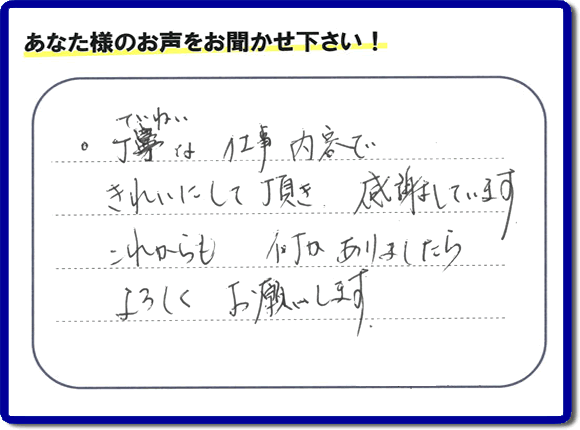 あなた様のお声をお聞かせ下さい！
ていねい
。丁寧な 仕事 内容で
きれいにして頂き 感謝しています
これからも 何かありましたら
よろしく お願いします.